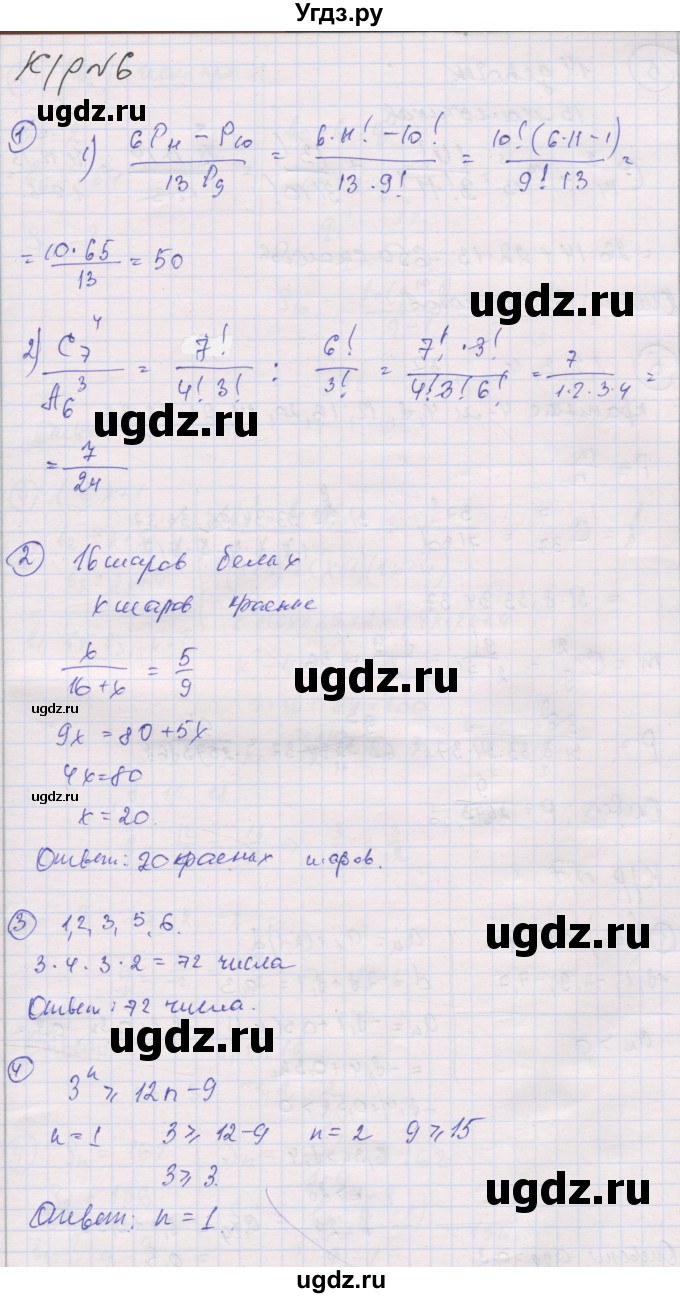 Угдз.ру
К/р №6
ugdz.ru
① 1) (6P₁₁ − P₁₀)/(13P₉) = (6·11! − 10!)/(13·9!) = (10!(6·11−1))/(9! 13) =
= (10·65)/13 = 50
ugdz.ru
2) C₇⁴/A₆³ = 7!/(4! 3!) : 6!/3! = (7!·3!)/(4! 3! 6!) = 7/(1·2·3·4) =
ugdz.ru
ugdz.ru
= 7/24
② 16 шаров белах
x шаров красные
x/(16+x) = 5/9
ugdz.ru
ugdz.ru
9x = 80 + 5x
4x = 80
ugdz.ru
x = 20.
Ответ: 20 красных шаров.
③ 1, 2, 3, 5, 6.
ugdz.ru
3·4·3·2 = 72 числа
Ответ: 72 числа.
ugdz.ru
④ 3ⁿ ⩾ 12n − 9
n = 1 3 ⩾ 12−9 n = 2 9 ⩾ 15
3 ⩾ 3.
ugdz.ru
Ответ: n = 1
ugdz.ru